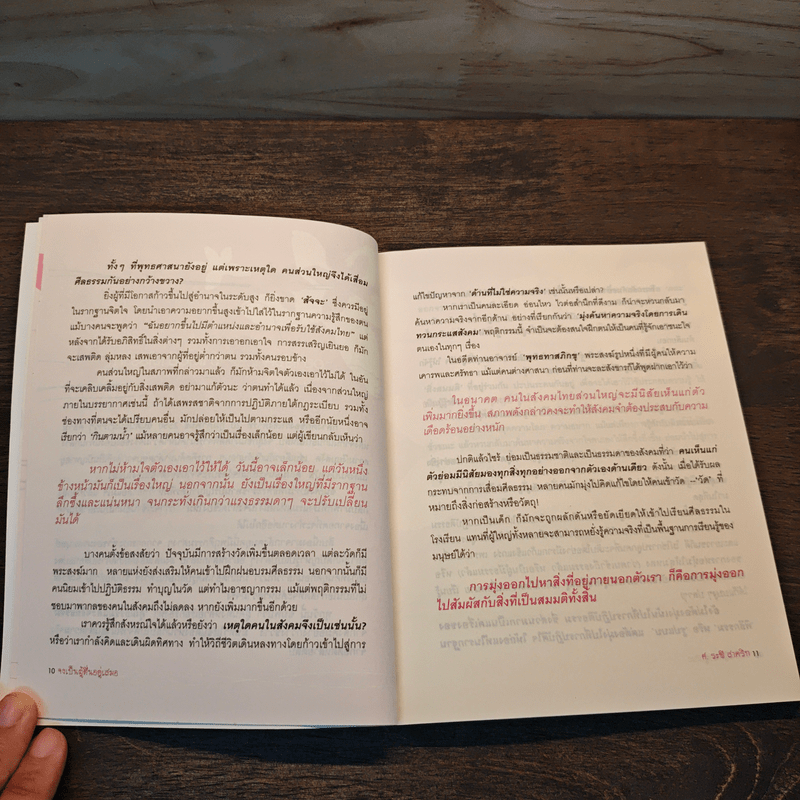 ทั้งๆ ที่พุทธศาสนายังอยู่ แต่เพราะเหตุใด คนส่วนใหญ่จึงได้เสื่อม
ศีลธรรมกันอย่างกว้างขวาง?
ยิ่งผู้ที่มีโอกาสก้าวขึ้นไปสู่อำนาจในระดับสูง ก็ยิ่งขาด ‘สัจจะ’ ซึ่งควรมีอยู่
ในรากฐานจิตใจ โดยนำเอาความอยากขึ้นสูงเข้าไปใส่ไว้ในรากฐานความรู้สึกของตน
แม้บางคนจะพูดว่า “ฉันอยากขึ้นไปมีตำแหน่งและอำนาจเพื่อรับใช้สังคมไทย” แต่
หลังจากได้รับอภิสิทธิ์ในสิ่งต่างๆ รวมทั้งการเอาอกเอาใจ การสรรเสริญเยินยอ ก็มัก
จะเสพติด ลุ่มหลง เสพเอาจากผู้ที่อยู่ต่ำกว่าตน รวมทั้งคนรอบข้าง
คนส่วนใหญ่ในสภาพที่กล่าวมาแล้ว ก็มักห้ามจิตใจตัวเองเอาไว้ไม่ได้ ในอัน
ที่จะเคลิบเคลิ้มอยู่กับสิ่งเสพติด อย่ามาแก้ตัวนะ ว่าตนทำได้แล้ว เนื่องจากส่วนใหญ่
ภายในบรรยากาศเช่นนี้ ถ้าได้เสพรสชาติจากการปฏิบัติภายใต้กฎระเบียบ รวมทั้ง
ช่องทางที่ตนจะได้เปรียบคนอื่น มักปล่อยให้เป็นไปตามกระแส หรืออีกนัยหนึ่งอาจ
เรียกว่า ‘กินตามน้ำ’ แม้หลายคนอาจรู้สึกว่าเป็นเรื่องเล็กน้อย แต่ผู้เขียนกลับเห็นว่า
หากไม่ห้ามใจตัวเองเอาไว้ให้ได้ วันนี้อาจเล็กน้อย แต่วันหนึ่ง
ข้างหน้ามันก็เป็นเรื่องใหญ่ นอกจากนั้น ยังเป็นเรื่องใหญ่ที่มีรากฐาน
ลึกซึ้งและแน่นหนา จนกระทั่งเกินกว่าแรงธรรมดาๆ จะปรับเปลี่ยน
มันได้
บางคนตั้งข้อสงสัยว่า ปัจจุบันมีการสร้างวัดเพิ่มขึ้นตลอดเวลา แต่ละวัดก็มี
พระสงฆ์มาก หลายแห่งยังส่งเสริมให้คนเข้าไปฝึกฝนอบรมศีลธรรม นอกจากนั้นก็มี
คนนิยมเข้าไปปฏิบัติธรรม ทำบุญในวัด แต่ทำไมอาชญากรรม แม้แต่พฤติกรรมที่ไม่
ชอบมาพากลของคนในสังคมถึงไม่ลดลง หากยังเพิ่มมากขึ้นอีกด้วย
เราควรรู้สึกสังหรณ์ใจได้แล้วหรือยังว่า เหตุใดคนในสังคมจึงเป็นเช่นนั้น?
หรือว่าเรากำลังคิดและเดินผิดทิศทาง ทำให้วิถีชีวิตเดินหลงทางโดยก้าวเข้าไปสู่การ
10 จงเป็นผู้ตื่นอยู่เสมอ
แก้ไขปัญหาจาก ‘ด้านที่ไม่ใช่ความจริง’ เช่นนั้นหรือเปล่า?
หากเราเป็นคนละเอียด อ่อนไหว ไวต่อสำนึกที่ดีงาม ก็น่าจะหวนกลับมา
ค้นหาความจริงจากอีกด้าน อย่างที่เรียกกันว่า ‘มุ่งค้นหาความจริงโดยการเดิน
ทวนกระแสสังคม’ พฤติกรรมนี้ จำเป็นจะต้องสนใจฝึกตนให้เป็นคนที่รู้จักเอาชนะใจ
ตนเองในทุกๆ เรื่อง
ในอดีตท่านอาจารย์ ‘พุทธทาสภิกขุ’ พระสงฆ์รูปหนึ่งที่มีผู้คนให้ความ
เคารพและศรัทธา แม้แต่คนต่างศาสนา ก่อนที่ท่านจะละสังขารก็ได้พูดฝากเอาไว้ว่า
ในอนาคต คนในสังคมไทยส่วนใหญ่จะมีนิสัยเห็นแก่ตัว
เพิ่มมากยิ่งขึ้น สภาพดังกล่าวคงจะทำให้สังคมจำต้องประสบกับความ
เดือดร้อนอย่างหนัก
ปกติแล้วไซร้ ย่อมเป็นธรรมชาติและเป็นธรรมดาของสังคมที่ว่า คนเห็นแก่
ตัวย่อมมีนิสัยมองทุกสิ่งทุกอย่างออกจากตัวเองด้านเดียว ดังนั้น เมื่อได้รับผล
กระทบจากการเสื่อมศีลธรรม หลายคนมักมุ่งไปคิดแก้ไขโดยให้คนเข้าวัด –‘วัด’ ที่
หมายถึงสิ่งก่อสร้างหรือวัตถุ!
หากเป็นเด็ก ก็มักจะถูกผลักดันหรือยัดเยียดให้เข้าไปเรียนศีลธรรมใน
โรงเรียน แทนที่ผู้ใหญ่ทั้งหลายจะสามารถหยั่งรู้ความจริงที่เป็นพื้นฐานการเรียนรู้ของ
มนุษย์ได้ว่า
การมุ่งออกไปหาสิ่งที่อยู่ภายนอกตัวเรา ก็คือการมุ่งออก
ไปสัมผัสกับสิ่งที่เป็นสมมติทั้งสิ้น
ศ. ระพี สาคริก 11